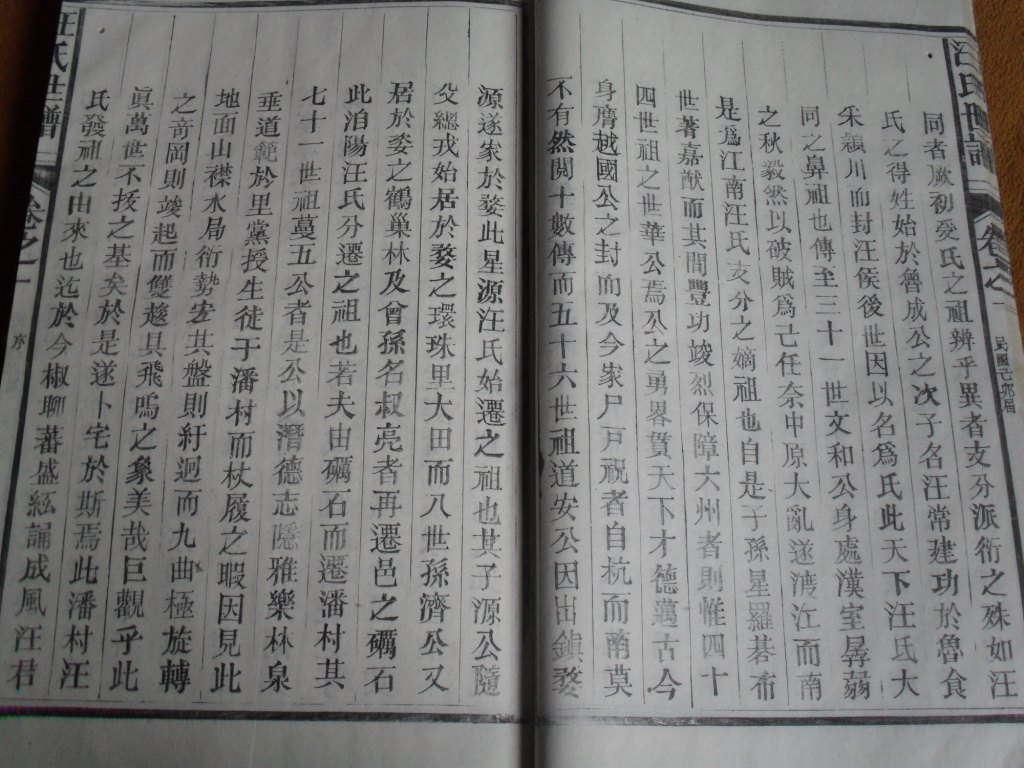 汪氏世譜
卷之一
同者厥初受氏之祖辨乎異者支分派衍之殊如汪
氏之得姓始於魯成公之次子名汪常建功於魯食
采潁川而封汪侯後世因以名爲氏此天下汪氏大
同之鼻祖也傳至三十一世文和公身處漢室孱弱
之秋毅然以破賊爲己任奈中原大亂遂渡江而南
是爲江南汪氏支分之嫡祖也自是子孫星羅碁布
世著嘉猷而其間豐功竣烈保障六州者則惟四十
四世祖之世華公焉公之勇畧貫天下才德邁古今
身膺越國公之封而及今家尸戸祝者自杭而南莫
不有然閱十數傳而五十六世祖道安公因出鎮婺
源遂家於婺此星源汪氏始遷之祖也其子源公隨
父總戎始居於婺之環珠里大田而八世孫濟公又
居於婺之鶴巢林及曾孫名叔亮者再遷邑之礪石
此洎陽汪氏分遷之祖也若夫由礪石而遷潘村其
七十一世祖蔓五公者是公以潛德志隱雅樂林泉
垂道範於里黨授生徒于潘村而杖履之暇因見此
地面山襟水局衍勢宏其盤則紆迴而九曲極旋轉
之奇岡則竣起而雙䟆具飛鳴之象美哉巨觀乎此
眞萬世不拔之基矣於是遂卜宅於斯焉此潘村汪
氏發祖之由來也迄於今椒聊蕃盛絃誦成風汪君
汪氏世譜
卷之一
序